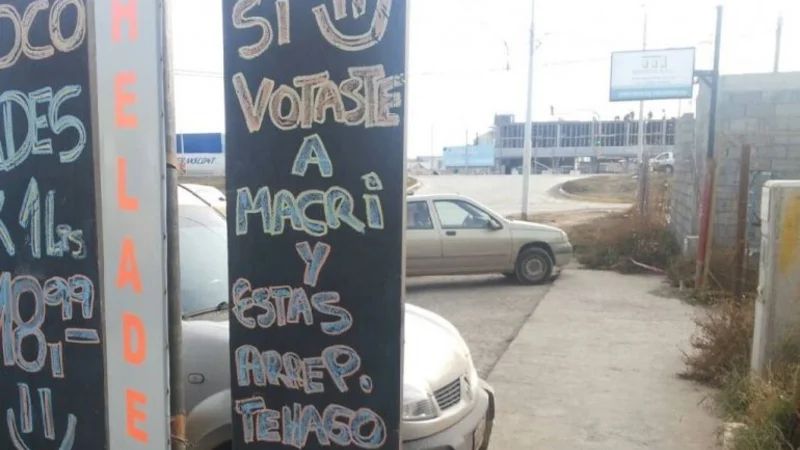 OCO
DES
X 1 Lts
18.99
HELADE
SI
VOTASTE
A
MACRi
Y
ESTAS
ARREP.
TEHAGO
TRANSCONT